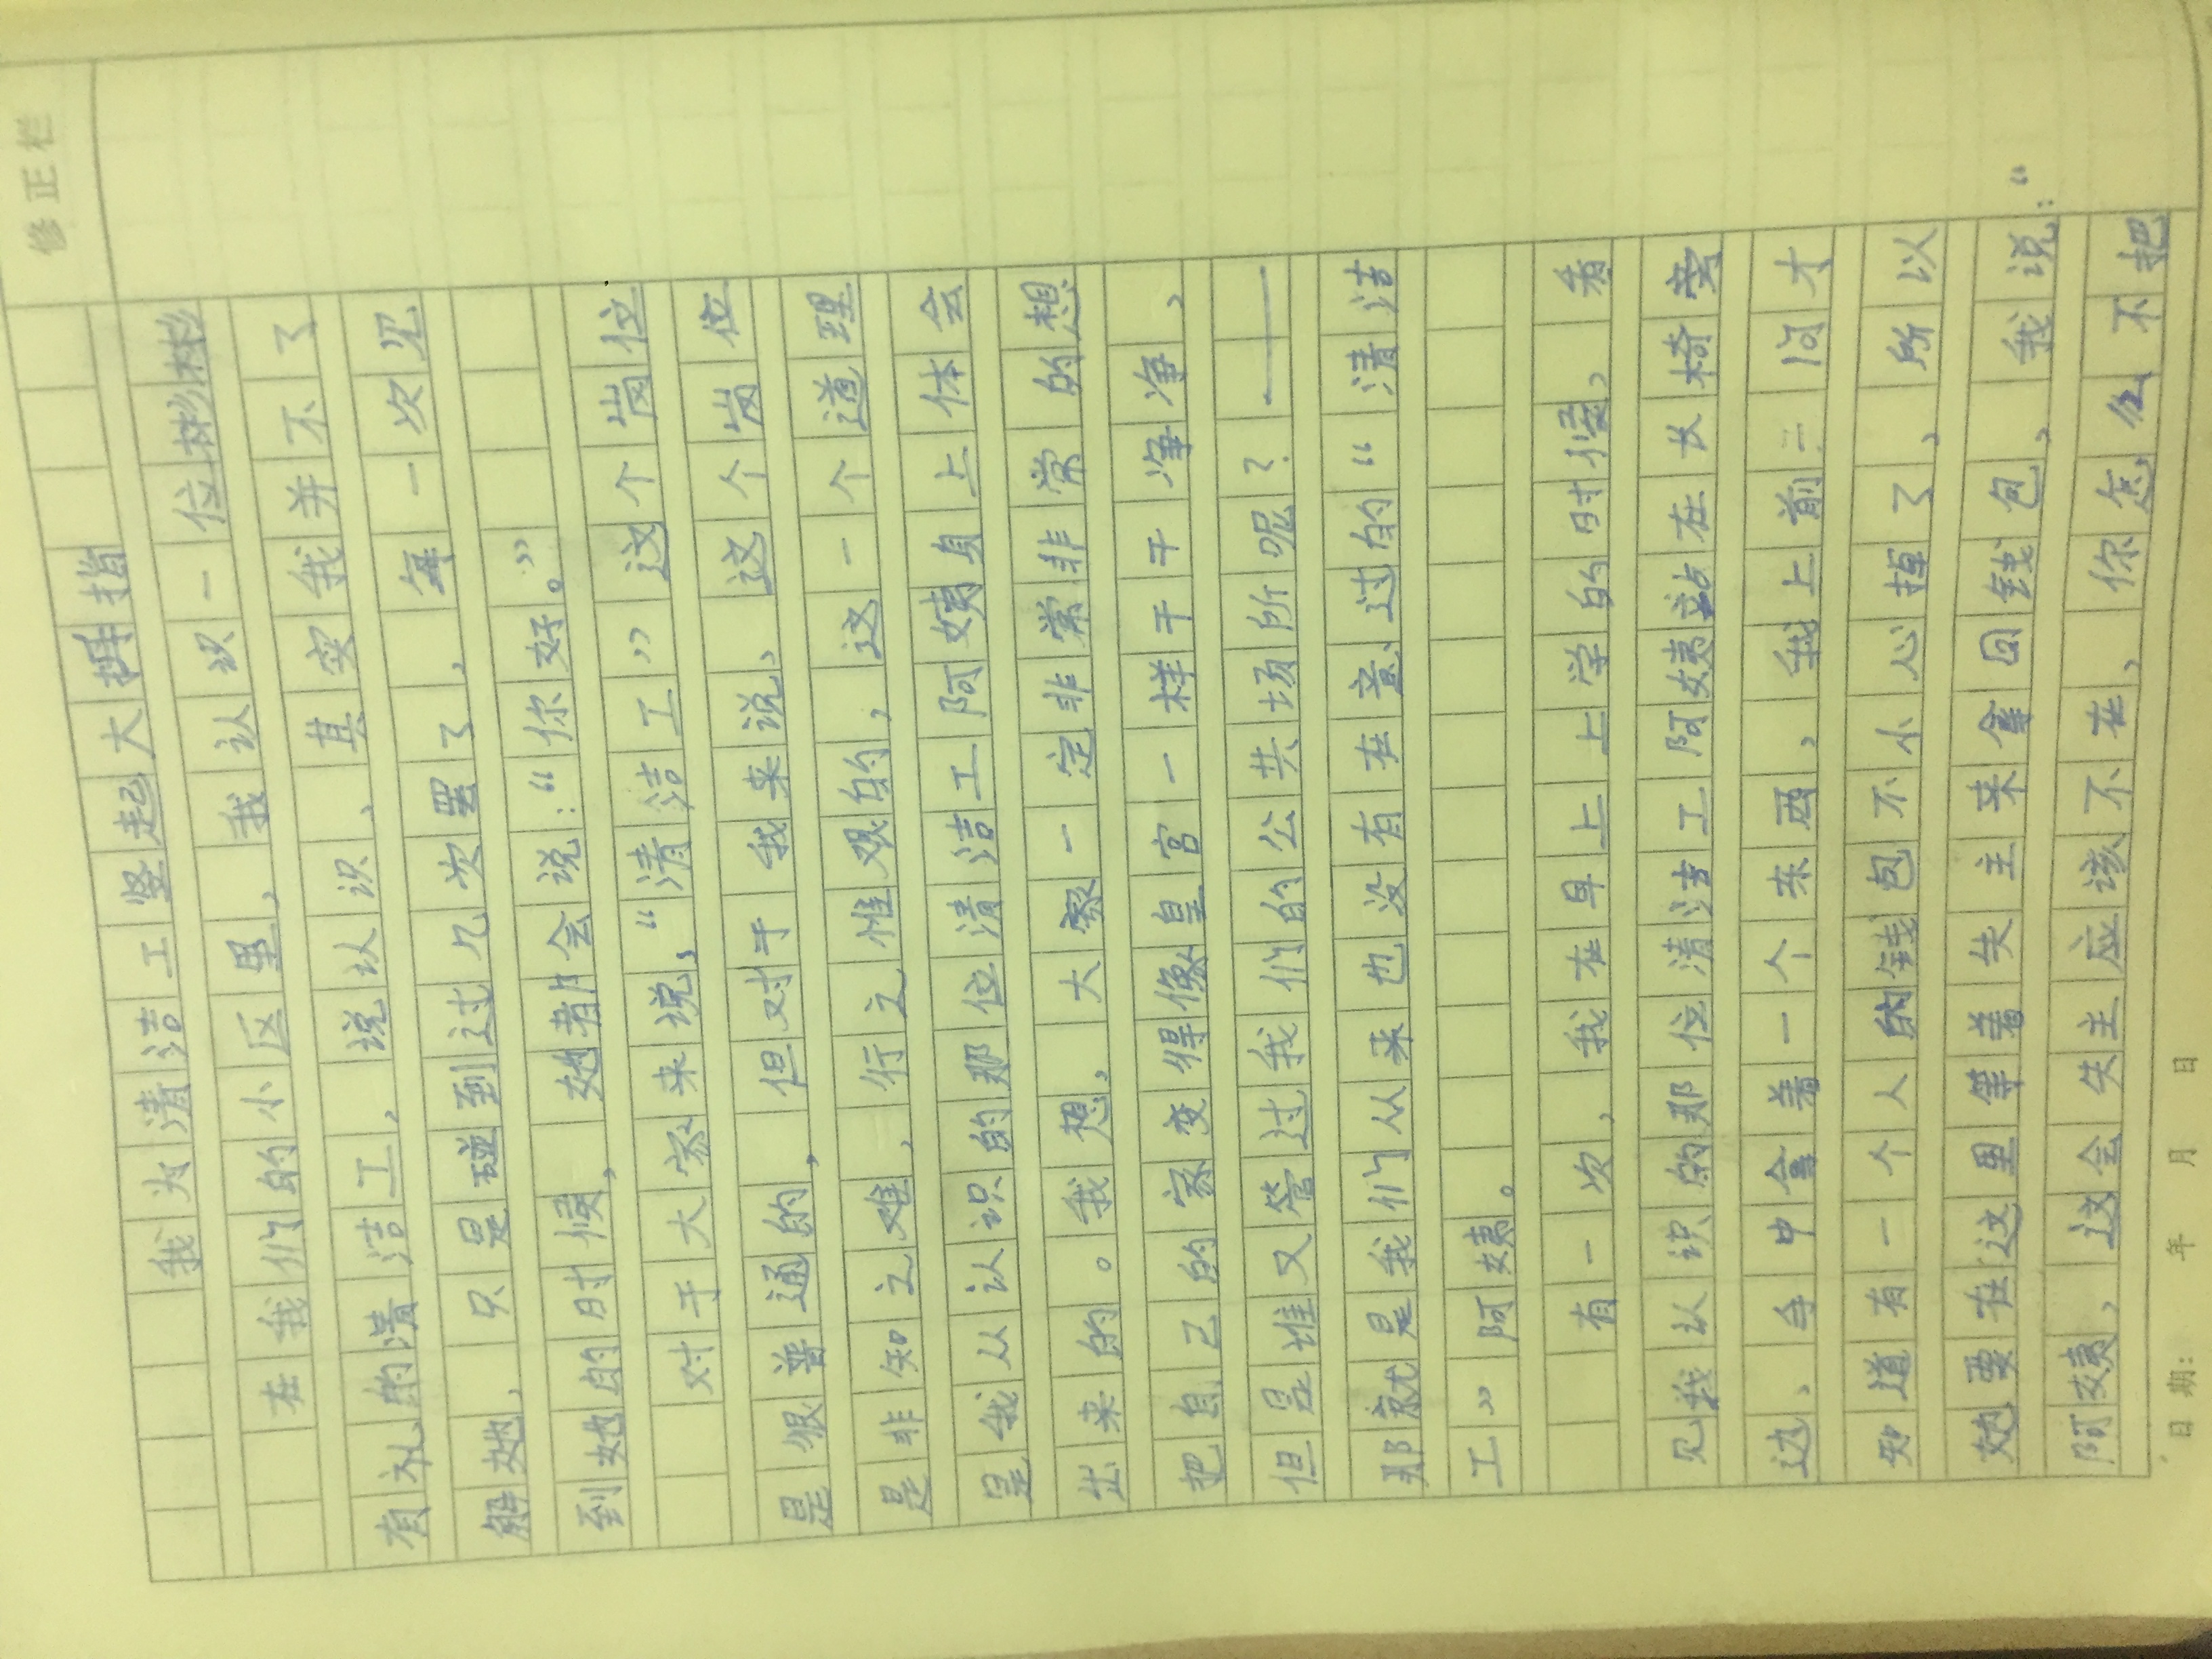 修正栏
我为清洁工竖起大拇指
在我们的小区里，我认识一位彬彬
有礼的清洁工，说认识、其实我并不了
解她，只是碰到过几次罢了，每一次见
到她的时候，她都会说：“你好。”
对于大家来说，“清洁工”这个岗位
是很普通的，但对于我来说，这个岗位
是非知之难，行之惟艰的，这一个道理
是我从认识的那位清洁工阿姨身上体会
出来的。我想，大家一定非常非常的想
把自己的家变得像皇宫一样干干净净，
但是谁又管过我们的公共场所呢？——
那就是我们从来也没有在意过的“清洁
工”阿姨。
有一次，我在早上上学的时候，看
见我认识的那位清洁工阿姨站在长椅旁
边，手中拿着一个东西，我上前一问才
知道有一个人的钱包不小心掉了，所以
她要在这里等着失主来拿回钱包，我说：“
阿姨，这会失主应该不在，你怎么不把
日期： 年 月 日